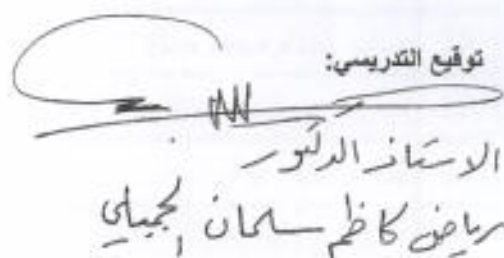 توقيع التدريسي:
الاستاذ الدكتور
رياض كاظم سلمان الجميلي